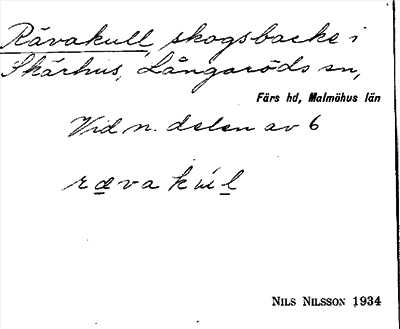 Rävakull, skogsbacke i
Skärhus, Långaröds sn,
Färs hd, Malmöhus län
Vid n. delen av 6
rævakul
NILS NILSSON 1934